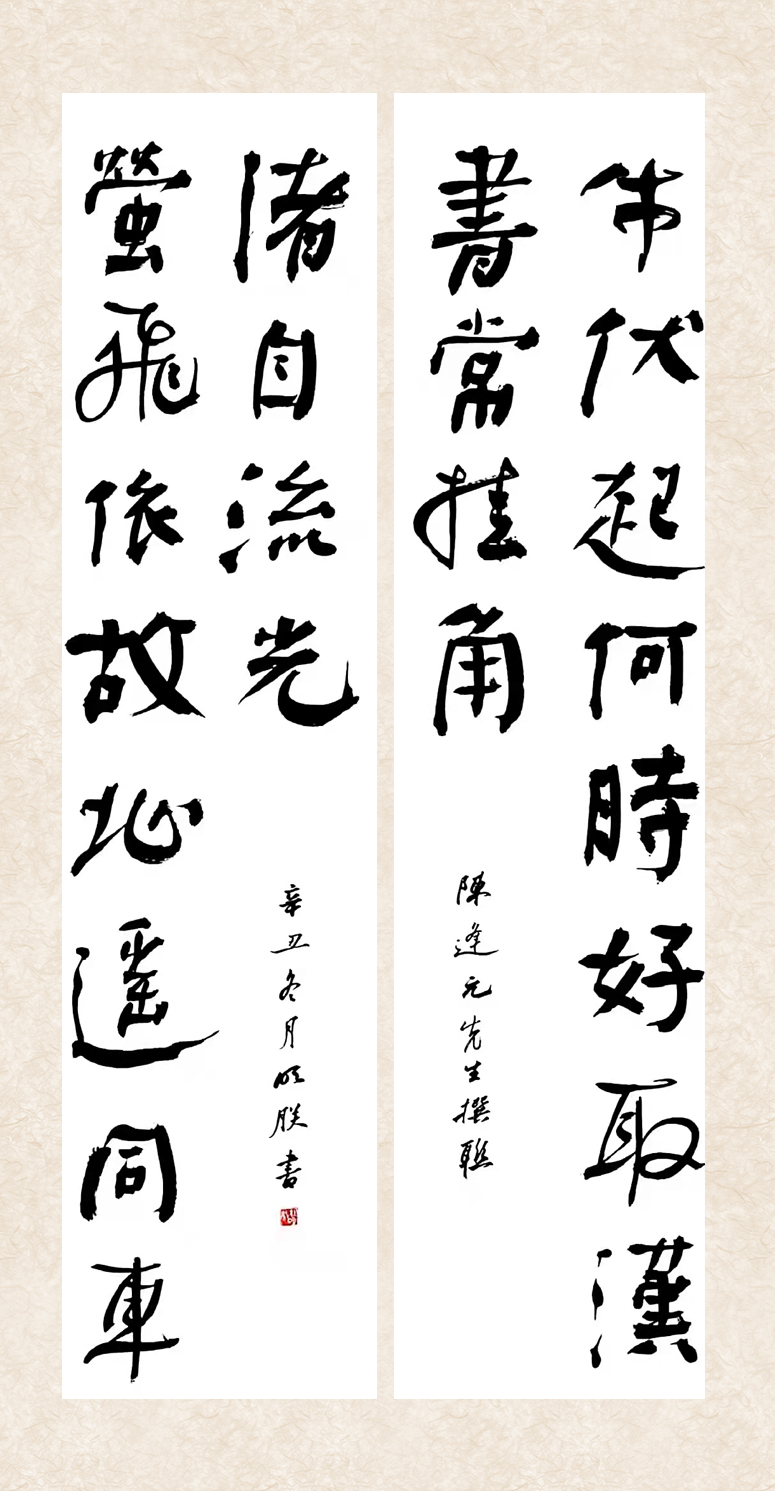 牛伏起何時好取漢
書常挂角
陳逢元先生撰聯
螢飛依故址遙同車
渚自流光
辛丑冬月書